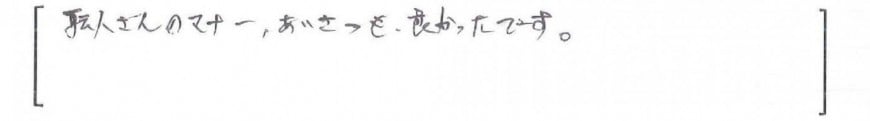 職人さんのマナー,あいさつも、良かったです。